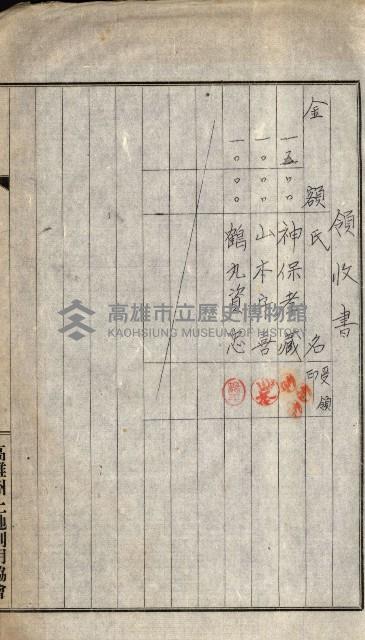 領收書
金額 氏名 受領印
一五〇〇 神保孝藏
一〇〇〇 山本
一〇〇〇 鶴丸資
高雄州土地利用協會
高雄市立歷史博物館
KAOHSIUNG MUSEUM OF HISTORY